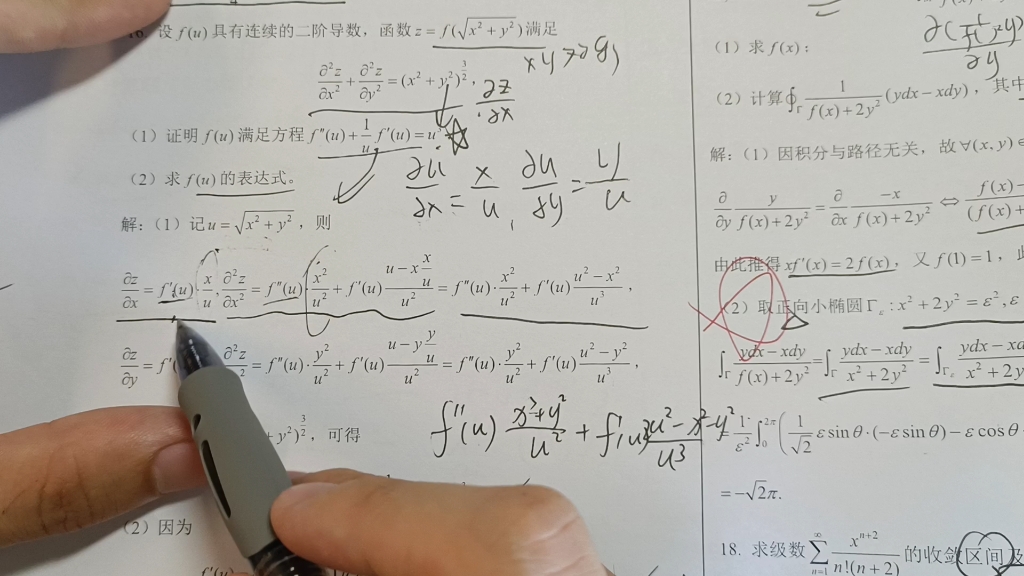 16. 设 f(u) 具有连续的二阶导数，函数 z = f(√(x²+y²)) 满足
∂²z/∂x² + ∂²z/∂y² = (x²+y²)^(3/2),
∂z/∂x
（1）证明 f(u) 满足方程 f''(u) + (1/u) f'(u) = u³
（2）求 f(u) 的表达式。
∂u/∂x = x/u , ∂u/∂y = y/u
解：（1）记 u = √(x²+y²)，则
∂z/∂x = f'(u)·x/u, ∂²z/∂x² = f''(u)·x²/u² + f'(u) (u − x·x/u)/u² = f''(u)·x²/u² + f'(u) (u²−x²)/u³,
∂z/∂y = f' = f''(u)·y²/u² + f'(u) (u − y·y/u)/u² = f''(u)·y²/u² + f'(u) (u²−y²)/u³,
f''(u) (x²+y²)/u² + f'(u) (2u²−x²−y²)/u³
+y²)^(3/2)，可得
（2）因为
（1）求 f(x)：
（2）计算 ∮_Γ 1/(f(x)+2y²) (ydx − xdy)，其中
解：（1）因积分与路径无关，故 ∀(x,y) ∈
∂/∂y y/(f(x)+2y²) = ∂/∂x −x/(f(x)+2y²) ⇔ f(x)−
由此推得 xf'(x) = 2f(x)，又 f(1) = 1，
（2）取正向小椭圆 Γ_ε : x²+2y² = ε², ε
∫_Γ (ydx−xdy)/(f(x)+2y²) = ∫_Γ (ydx−xdy)/(x²+2y²) = ∫_Γε (ydx−xd)/(x²+2y²)
= 1/ε² ∫_0^(2π) (1/√2 ε sinθ·(−ε sinθ) − ε cosθ·
= −√2π.
18. 求级数 ∑_(n=1)^∞ x^(n+2)/(n!(n+2)) 的收敛区间及